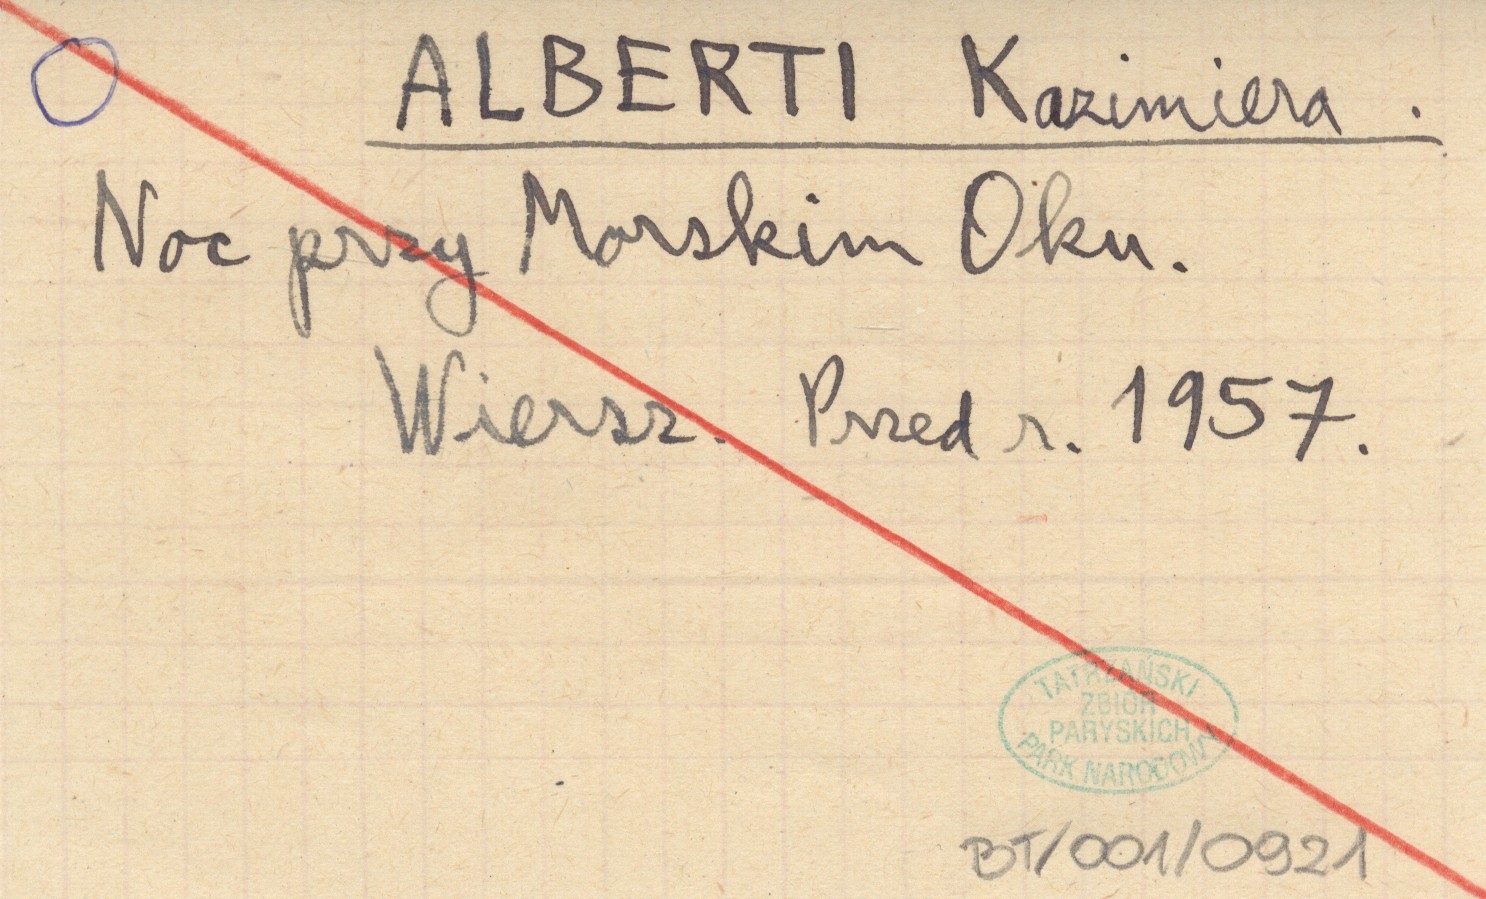 ALBERTI Kazimiera.
Noc przy Morskim Oku.
Wiersz. Przed r. 1957.
TATRZAŃSKI
ZBIÓR
PARYSKICH
PARK NARODOWY
BT/001/0921